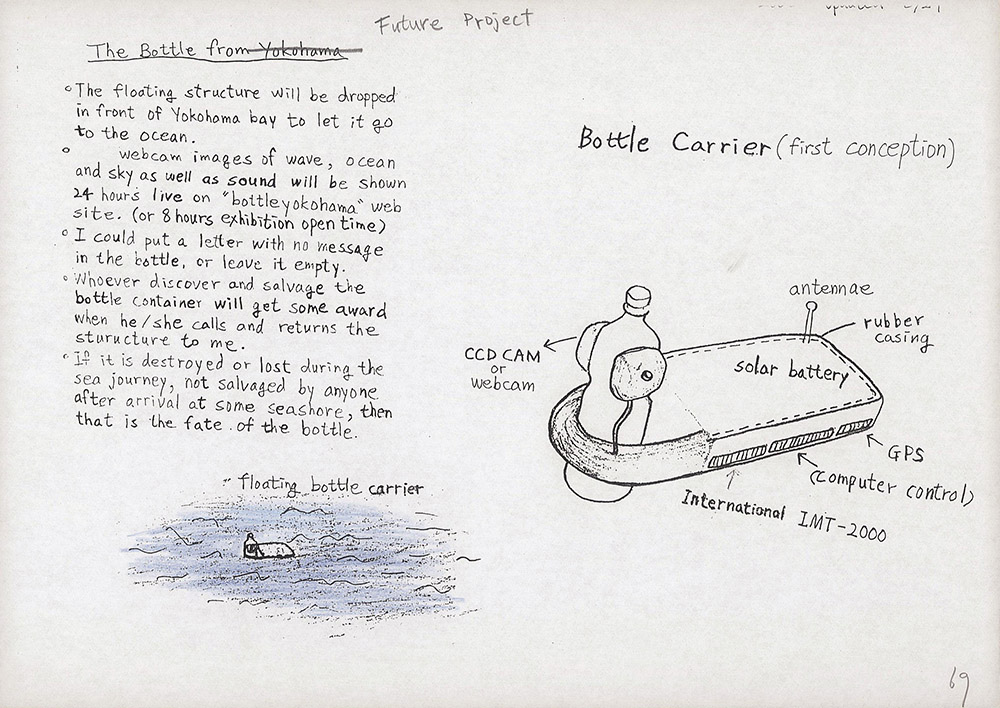 Future Project
The Bottle from Yokohama
The floating structure will be dropped
in front of Yokohama bay to let it go
to the ocean.
webcam images of wave, ocean
and sky as well as sound will be shown
24 hours live on "bottleyokohama" web
site. (or 8 hours exhibition open time)
I could put a letter with no message
in the bottle, or leave it empty.
Whoever discover and salvage the
bottle container will get some award
when he/she calls and returns the
sturucture to me.
If it is destroyed or lost during the
sea journey, not salvaged by anyone
after arrival at some seashore, then
that is the fate of the bottle.
floating bottle carrier
Bottle Carrier (first conception)
antennae
rubber
casing
CCD CAM
or
webcam
solar battery
GPS
(computer control)
International IMT-2000
69